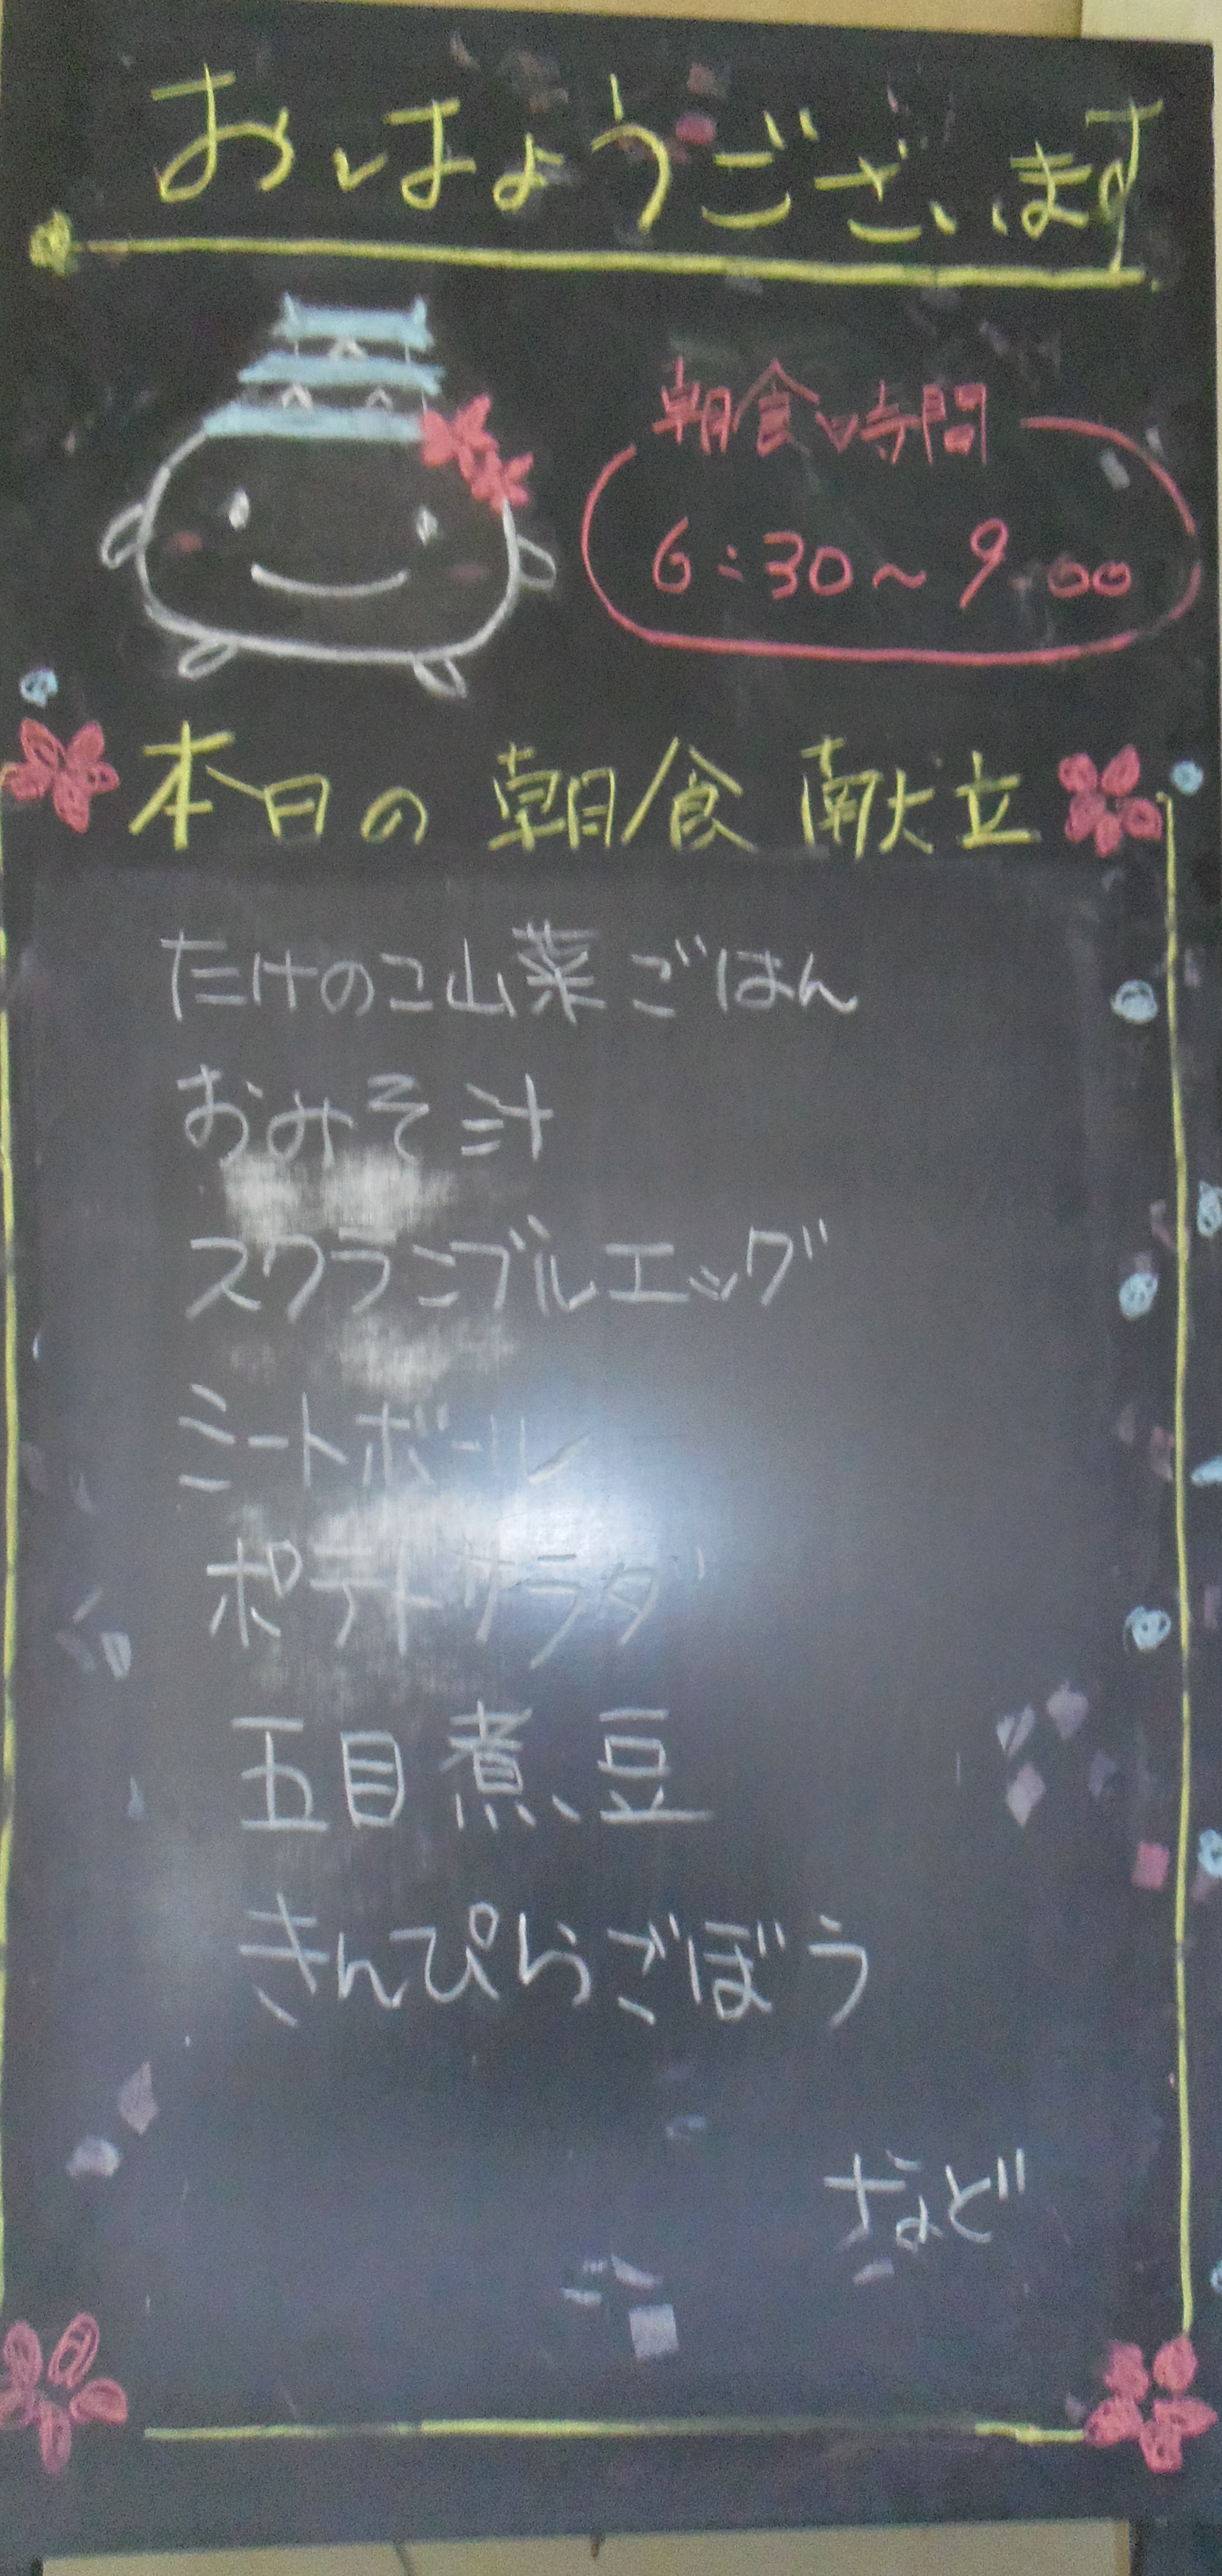 おはようございます
朝食時間
6:30～9:00
本日の朝食献立
たけのこ山菜ごはん
おみそ汁
スクランブルエッグ
ミートボール
ポテトサラダ
五目煮豆
きんぴらごぼう
など